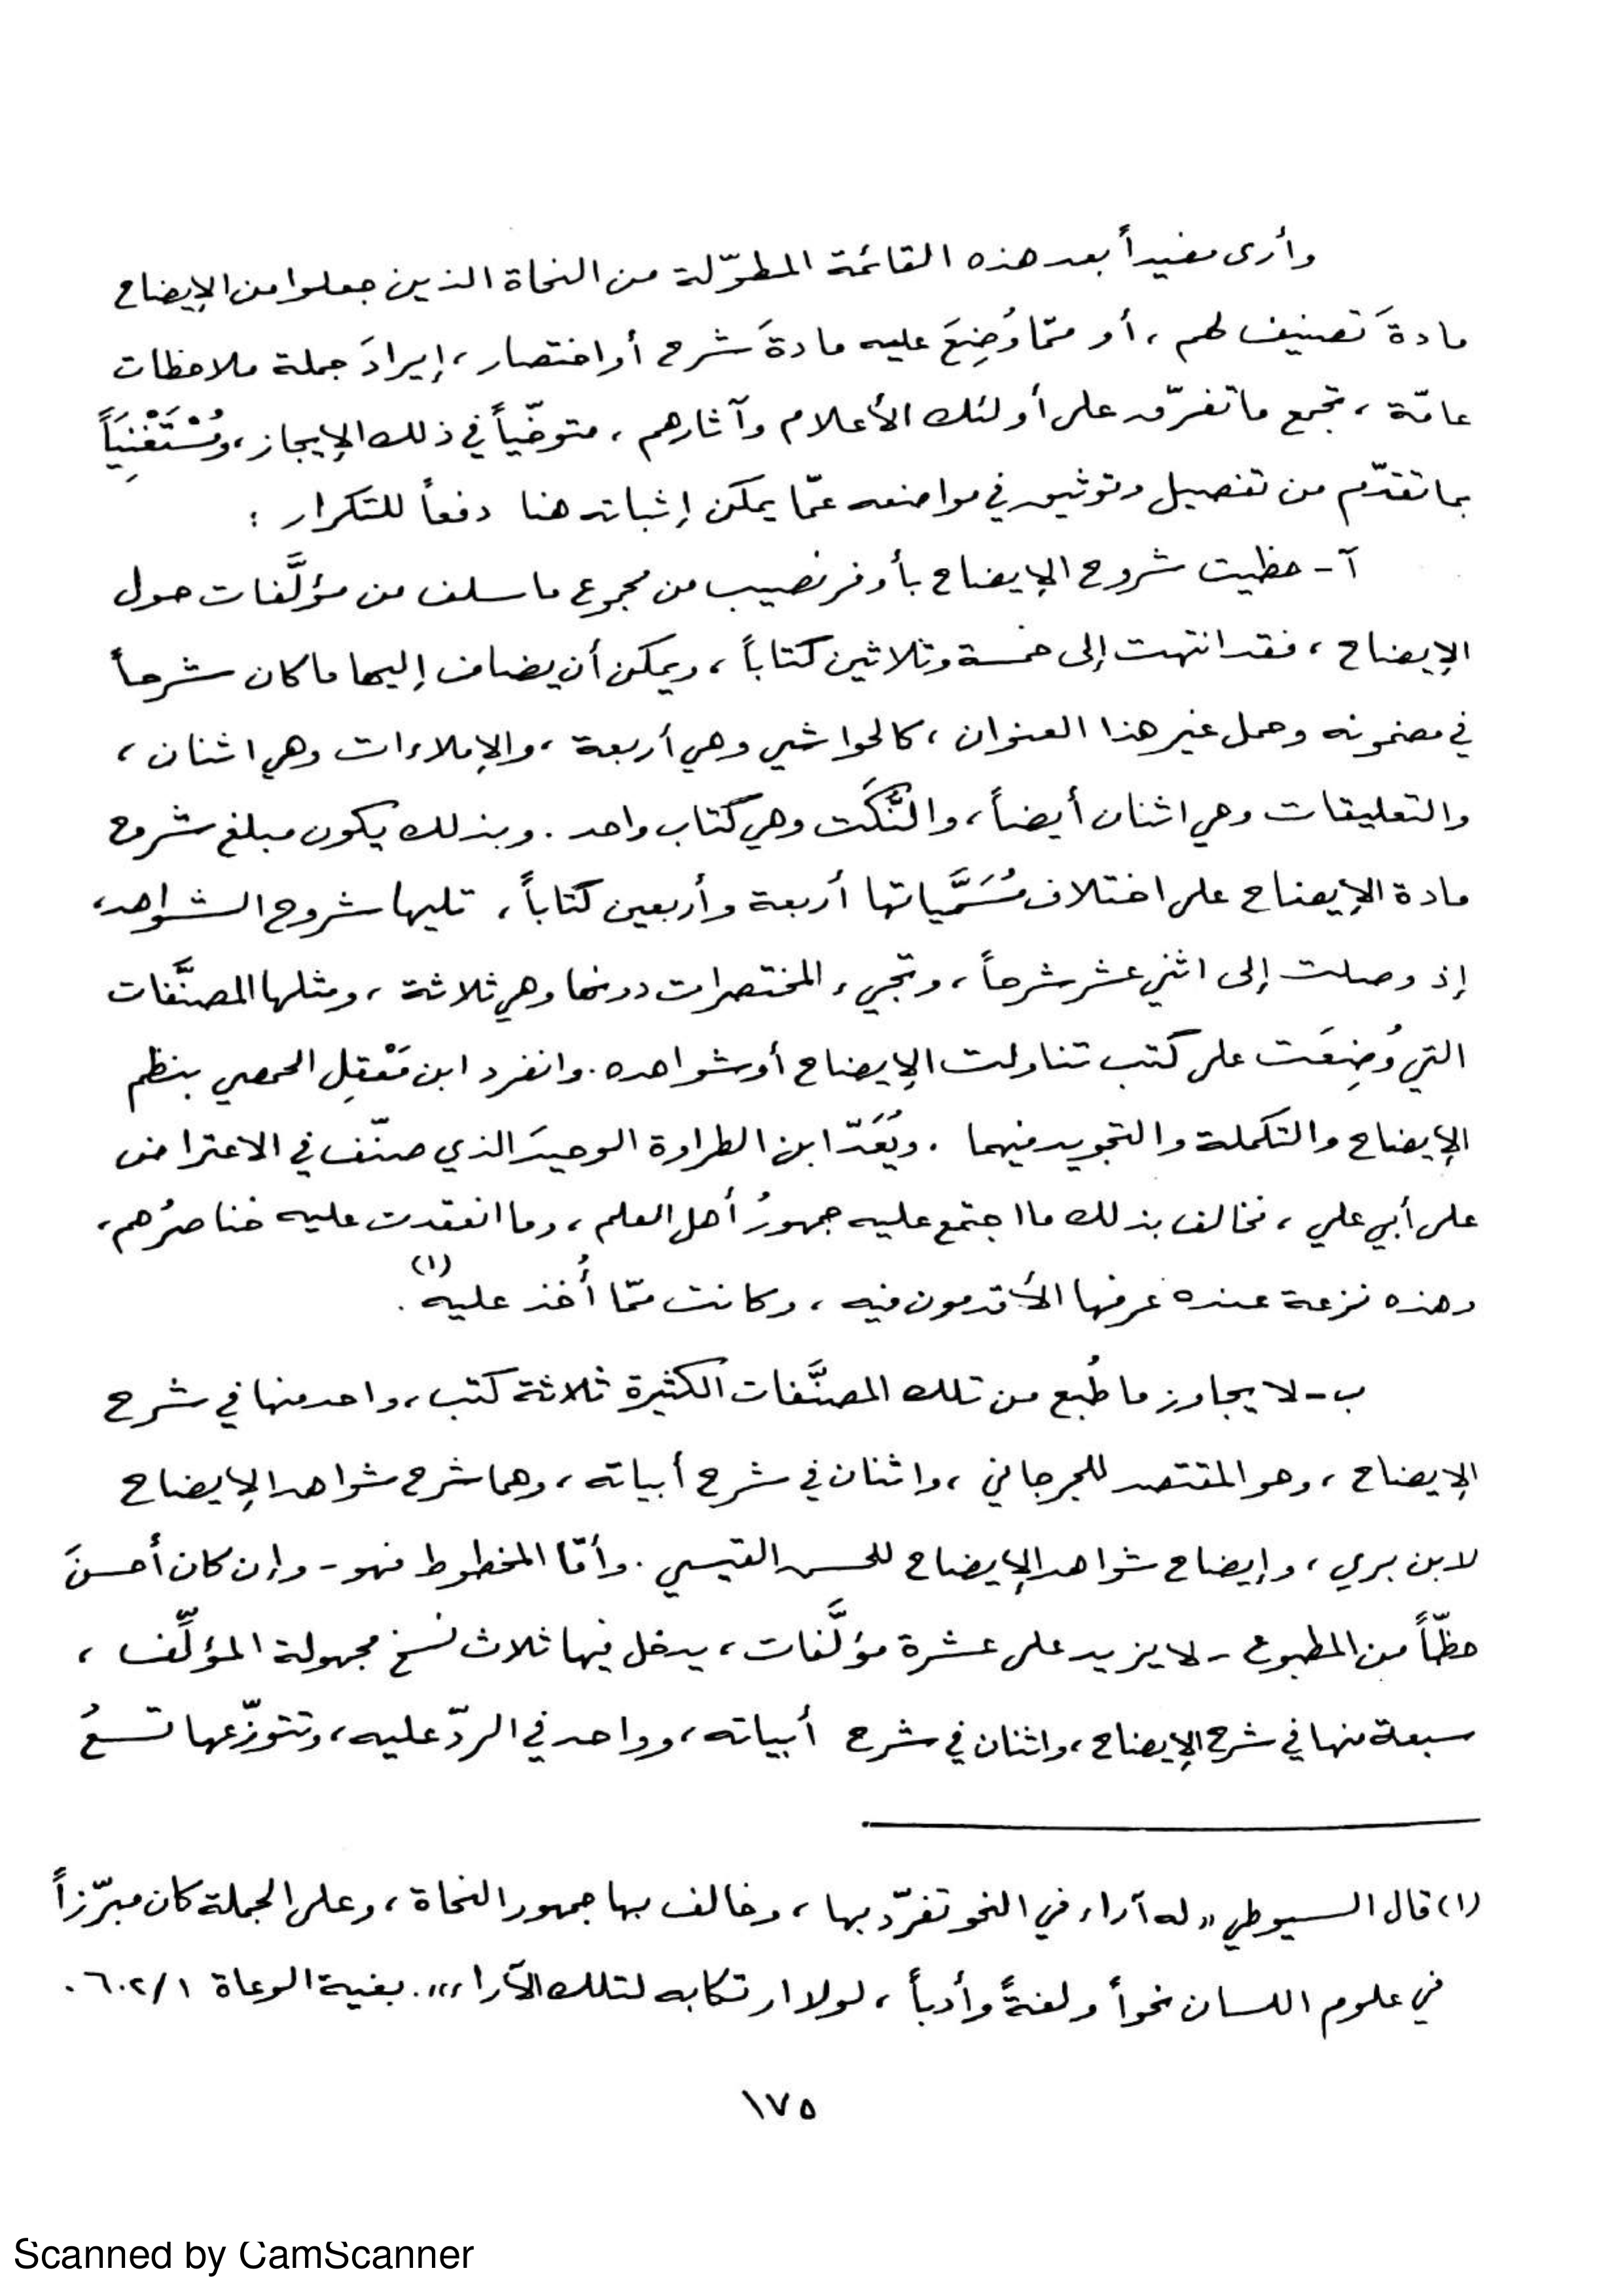 وأرى مفيداً بعد هذه القائمة المطوّلة من النحاة الذين جعلوا من الإيضاح
مادةَ تصنيف لهم ، أو ممّا وُضِعَ عليه مادةَ شرح أو اختصار ، إيرادَ جملة ملاحظات
عامّة ، تجمع ما تفرّق على أولئك الأعلام وآثارهم ، متوخّياً في ذلك الإيجاز ، ومُسْتَغْنِيَاً
بما تقدّم من تفصيل وتوثيق في مواضعه عمّا يمكن إثباته هنا دفعاً للتكرار :
آ - حظيت شروح الإيضاح بأوفر نصيب من مجموع ما سلف من مؤلَّفات حول
الإيضاح ، فقد انتهت إلى خمسة وثلاثين كتاباً ، ويمكن أن يضاف إليها ما كان شرحاً
في مضمونه وحمل غير هذا العنوان ، كالحواشي وهي أربعة ، والإملاءات وهي اثنان ،
والتعليقات وهي اثنان أيضاً ، والنُّكَت وهي كتاب واحد . وبذلك يكون مبلغ شروح
مادة الإيضاح على اختلاف مُسَمَّياتها أربعة وأربعين كتاباً ، تليها شروح الشواهد ،
إذ وصلت إلى اثني عشر شرحاً ، وتجيء المختصرات دونها وهي ثلاثة ، ومثلها المصنَّفات
التي وُضِعَت على كتب تناولت الإيضاح أو شواهده . وانفرد ابن مَعْقِل الحمصي بنظم
الإيضاح والتكملة والتجويد فيهما . ويُعَدّ ابن الطراوة الوحيدَ الذي صنّف في الاعتراض
على أبي علي ، فخالف بذلك ما اجتمع عليه جمهورُ أهل العلم ، وما انعقدت عليه خناصرُهم ،
وهذه نزعة عنده عرفها الأقدمون فيه ، وكانت ممّا أُخذ عليه (١) .
ب - لا يجاوز ما طُبع من تلك المصنَّفات الكثيرة ثلاثة كتب ، واحد منها في شرح
الإيضاح ، وهو المقتصد للجرجاني ، واثنان في شرح أبياته ، وهما شرح شواهد الإيضاح
لابن بري ، وإيضاح شواهد الإيضاح للحسن القيسي . وأمّا المخطوط فهو - وإن كان أحسنَ
حظّاً من المطبوع - لا يزيد على عشرة مؤلَّفات ، يدخل فيها ثلاث نسخ مجهولة المؤلِّف ،
سبعة منها في شرح الإيضاح ، واثنان في شرح أبياته ، وواحد في الردّ عليه ، وتتوزّعها تسعُ
(١) قال السيوطي « له آراء في النحو تفرّد بها ، وخالف بها جمهور النحاة ، وعلى الجملة كان مبرّزاً
في علوم اللسان نحواً ولغةً وأدباً ، لولا ارتكابه لتلك الآراء » . بغية الوعاة ١/٦٠٢ .
١٧٥
Scanned by CamScanner